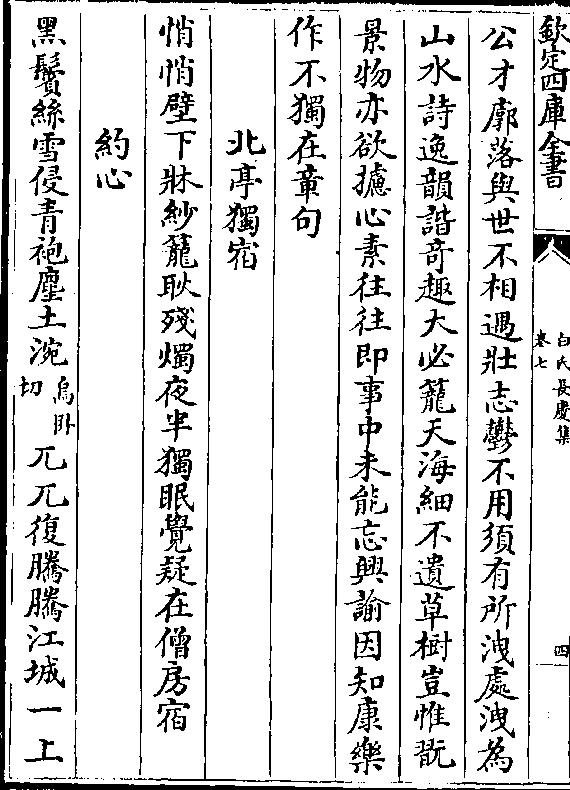 欽定四庫全書
白氏長慶集
卷七
四
公才廓落與世不相遇壯志鬱不用須有所洩處洩為
山水詩逸韻諧奇趣大必籠天海細不遺草樹豈惟翫
景物亦欲攄心素往往即事中未能忘興諭因知康樂
作不獨在章句
北亭獨宿
悄悄壁下牀紗籠耿殘燭夜半獨眠覺疑在僧房宿
約心
黑鬢絲雪侵青袍塵土涴烏卧切兀兀復騰騰江城一上